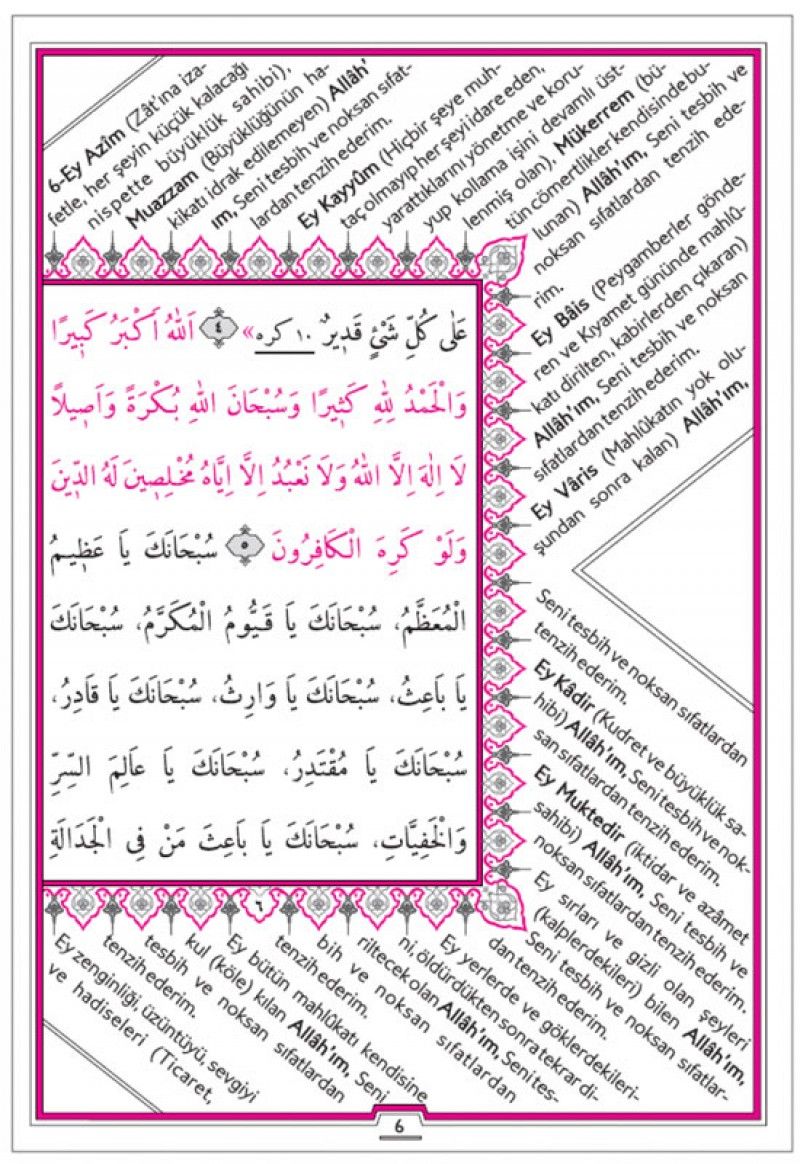 6-Ey Azîm (Zât'ına iza-
fetle, her şeyin küçük kalacağı
nispette büyüklük sahibi),
Muazzam (Büyüklüğünün ha-
kikatı idrak edilemeyen) Allâh'
ım, Seni tesbih ve noksan sıfat-
lardan tenzih ederim.
Ey Kayyûm (Hiçbir şeye muh-
taç olmayıp her şeyi idare eden,
yarattıklarını yönetme ve koru-
yup kollama işini devamlı üst-
lenmiş olan). Mükerrem (bü-
tün cömertlikler kendisinde bu-
lunan) Allâh'ım, Seni tesbih ve
noksan sıfatlardan tenzih ede-
rim.
Ey Bâis (Peygamberler gönde-
ren ve Kıyamet gününde mahlû-
katı dirilten, kabirlerden çıkaran)
Allâh'ım, Seni tesbih ve noksan
sıfatlardan tenzih ederim.
Ey Vâris (Mahlûkatın yok olu-
şundan sonra kalan) Allâh'ım,
Seni tesbih ve noksan sıfatlardan
tenzih ederim.
Ey Kâdir (Kudret ve büyüklük sa-
hibi) Allâh'ım, Seni tesbih ve nok-
san sıfatlardan tenzih ederim.
Ey Muktedir (iktidar ve azâmet
sahibi) Allâh'ım, Seni tesbih ve
noksan sıfatlardan tenzih ederim.
Ey sırları ve gizli olan şeyleri
(kalplerdekileri) bilen Allâh'ım,
Seni tesbih ve noksan sıfatlar-
dan tenzih ederim.
Ey yerlerde ve göklerdekileri-
ni, öldürdükten sonra tekrar di-
riltecek olan Allâh'ım, Seni tes-
bih ve noksan sıfatlardan
tenzih ederim.
Ey bütün mahlûkatı kendisine
kul (köle) kılan Allâh'ım, Seni
tesbih ve noksan sıfatlardan
tenzih ederim.
Ey zenginliği, üzüntüyü, sevgiyi
ve hadiseleri (Ticaret,
عَلٰى كُلِّ شَئٍ قَدِيرٌ ١٠ كره» ٤ اَللهُ اَكْبَرُ كَبِيرًا
وَالْحَمْدُ لِلهِ كَثِيرًا وَسُبْحَانَ اللهِ بُكْرَةً وَاَصِيلاً
لَا اِلٰهَ اِلَّا اللهُ وَلَا نَعْبُدُ اِلَّا اِيَّاهُ مُخْلِصِينَ لَهُ الدِّينَ
وَلَوْ كَرِهَ الْكَافِرُونَ ٥ سُبْحَانَكَ يَا عَظِيمُ
الْمُعَظَّمُ، سُبْحَانَكَ يَا قَيُّومُ الْمُكَرَّمُ، سُبْحَانَكَ
يَا بَاعِثُ، سُبْحَانَكَ يَا وَارِثُ، سُبْحَانَكَ يَا قَادِرُ،
سُبْحَانَكَ يَا مُقْتَدِرُ، سُبْحَانَكَ يَا عَالِمَ السِّرِّ
وَالْخَفِيَّاتِ، سُبْحَانَكَ يَا بَاعِثَ مَنْ فِى الْجَدَالَةِ
٦
6